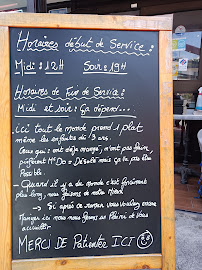 Horaires début de Service :
Midi : 12H Soir : 19H
Horaires de Fin de Service :
Midi et soir : Ça dépend...
ici tout le monde prend 1 plat
même les enfants de 3 ans.
Ceux qui ont déjà mangé, n'ont pas faim,
préfèrent Mc Do = Désolé mais ça ne va pas être
Possible.
- Quand il y a du monde c'est forcément
plus long, nous faisons de notre Mieux.
→ Si après ce roman vous voulez encore
Manger ici nous nous ferons un Plaisir de vous
accueillir.
MERCI DE Patienter ICI